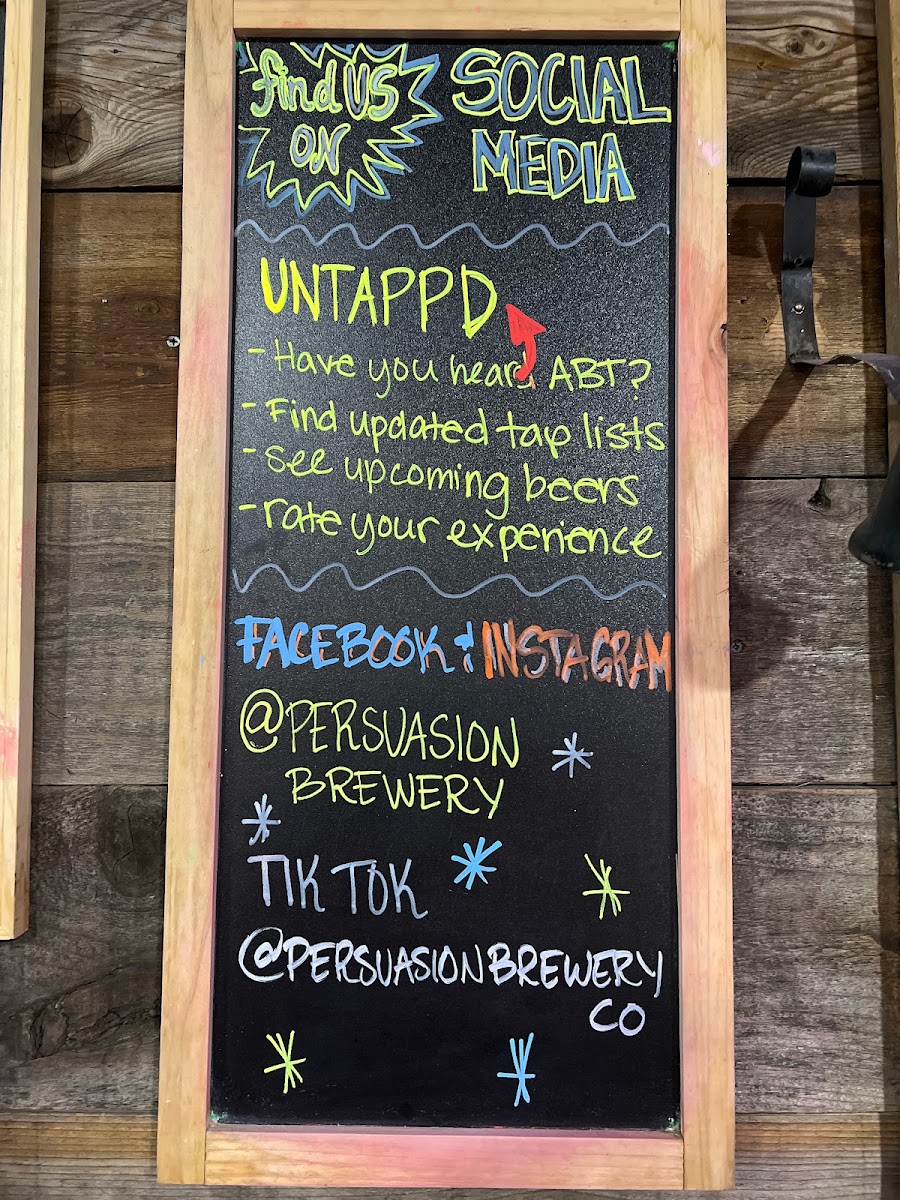 find US
ON
SOCIAL
MEDIA
UNTAPPD
- Have you heard ABT?
- Find updated tap lists
- see upcoming beers
- rate your experience
FACEBOOK & INSTAGRAM
@PERSUASION
BREWERY
TIK TOK
@PERSUASIONBREWERY
CO